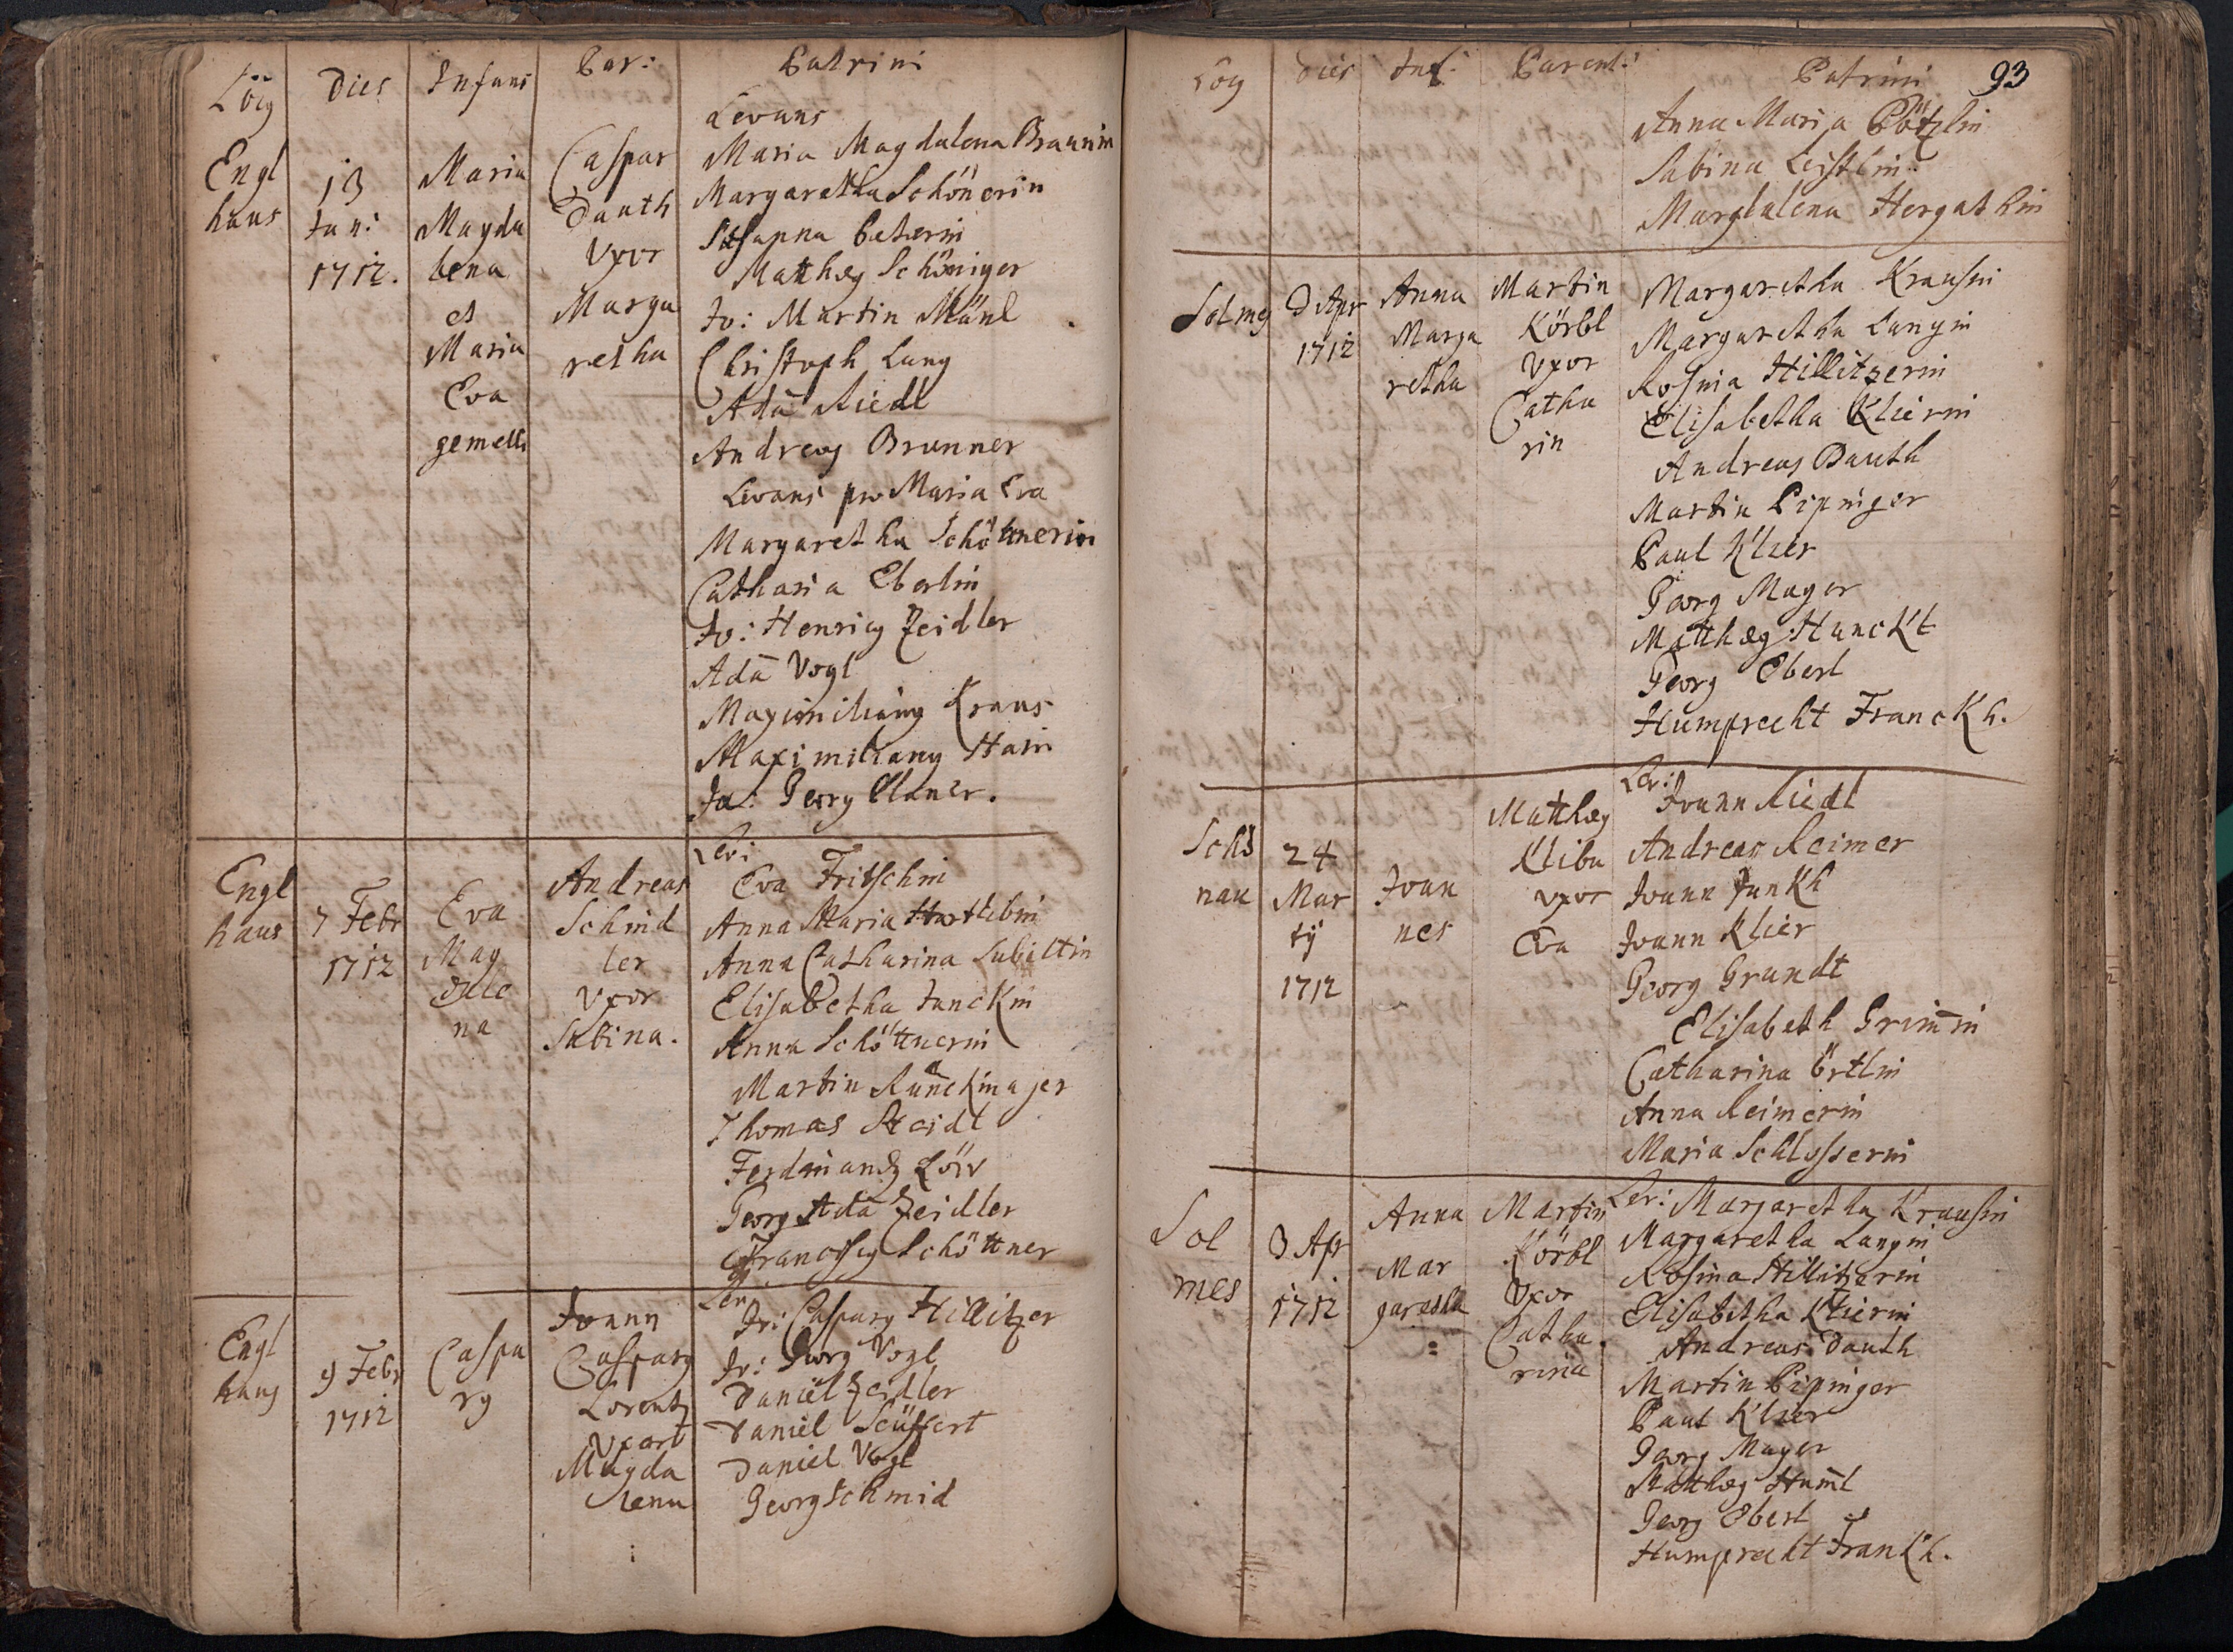 Log
Dies
Infans
Par:
Patrini
Engl
haus
13
Jan:
1712.
Maria
Magda
lena
et
Maria
Eva
gemelli
Caspar
Dauth
Vxor
Marga
retha
Levans
Maria Magdalena Braunin
Margaretha Schönerin
Susanna
Matthæg Schöniger
Jo: Martin Mänl
Christoph Lang
Adā Riedl
Andreag Brunner
Levans pro Maria Eva
Margaretha Schöttnerin
Catharia Eberlin
Jo: Henricg Zeidler
Adā Vogl
Maximiliang Kraus
Maximiliang Hain
Jo: Georg
Engl
haus
7 Febr
1712
Eva
Mag
dale
na
Andreas
Schind
ler
Vxor
Sabina.
Lev:
Eva Fritschin
Anna Maria Hartlibin
Anna Catharina
Elisabetha Junckin
Anna Schöttnerin
Martin
Thomas
Ferdinandg Löw
Georg Adā Zeidler
Franciscg Schöttner
Engl
haus
9 Febr
1712
Caspa
rg
Joann
Casparg
Lorentz
vxor
Magda
lena
Lev
Jo: Casparg Hillitzer
Jo: Georg Vogl
Daniel Zeidler
Daniel Seüffert
Daniel Vogl
Georg Schmid
Log
Dies
Inf:
Parent:
Patrini
93
Anna Maria Pötzlin
Sabina Leistlin
Margdalena Hergethin
Solmg
3 Apr
1712
Anna
Marga
retha
Martin
Körbl
Vxor
Catha
rin
Margaretha Krausin
Margaretha Langin
Rosnia Hillitzerin
Elisabetha Klierin
Andreas Dauth
Martin Pipniger
Paul Klier
Georg Mayer
Matthæg
Georg Eberl
Humprecht Franckh.
Schö
nau
24
Mar
tij
1712
Joan
nes
Matthæg
Kliba
vxor
Eva
Lev:
Joann Riedl
Andreas Reimer
Joann Junkh
Joann Klier
Georg Grundt
Elisabeth Grim̄in
Catharina Örtlin
Anna Reimerin
Maria Schlosserin
Sol
mes
3 Apr
1712
Anna
Mar
garetha
Martin
Körbl
Vxor
Catha
rina
Lev: Margaretha Krausin
Margaretha Langin
Rosina Hillitzerin
Elisabetha Klierin
Andreas Dauth
Martin Pipniger
Paul Klier
Georg Mayer
Matthæg Hum̄l
Georg Eberl
Humprecht Frankh.